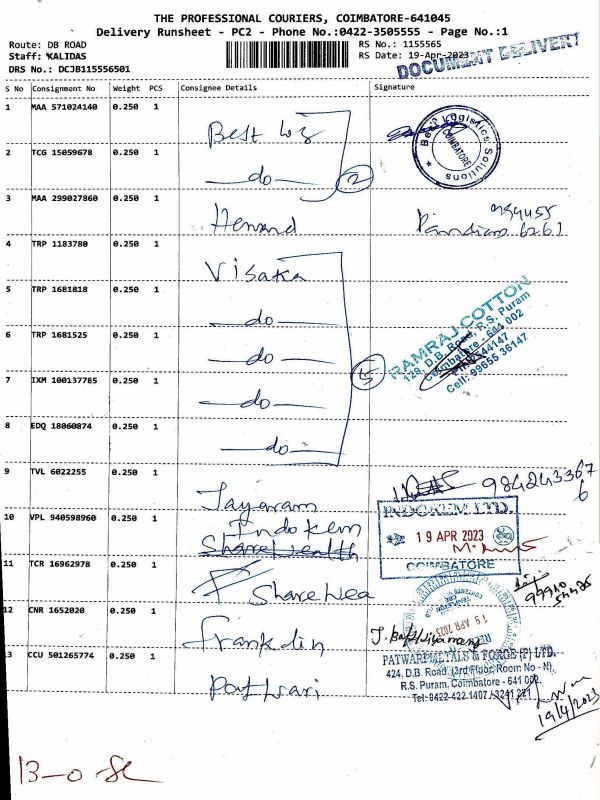 THE PROFESSIONAL COURIERS, COIMBATORE-641045
Delivery Runsheet - PC2 - Phone No.:0422-3505555 - Page No.:1
Route: DB ROAD
RS No.: 1155565
Staff: KALIDAS
RS Date: 19-Apr-2023
DRS No.: DCJB115556501
DOCUMENT DELIVERY
S No Consignment No Weight PCS Consignee Details Signature
1 MAA 571024140 0.250 1 Best Log
Best Logistics Solutions
COIMBATORE
2 TCG 15059678 0.250 1 do
2
3 MAA 299027860 0.250 1 Hemand
4 TRP 1183780 0.250 1 Visaka
5 TRP 1681818 0.250 1 do
6 TRP 1681525 0.250 1 do
5
RAMRAJ COTTON
129, D.B. Road, R.S. Puram
Coimbatore - 641 002
Cell: 99655 36147
7 IXM 100137785 0.250 1 do
8 EDQ 18060874 0.250 1 do
9 TVL 6022255 0.250 1 Jayaram
984243367
6
10 VPL 940598960 0.250 1 Indokem
INDOKEM LTD.
19 APR 2023
COIMBATORE
Share wealth
11 TCR 16962978 0.250 1 Share Wea
99910
12 CNR 1652020 0.250 1 Franklin
19 APR 2023
13 CCU 501265774 0.250 1 Pattvari
PATWARI METALS & FORGE (P) LTD.
424, D.B. Road, (3rd Floor, Room No - N),
R.S. Puram, Coimbatore - 641 002.
Tel: 0422-422 1407 / 3241 221
19/4/2023
13-0-